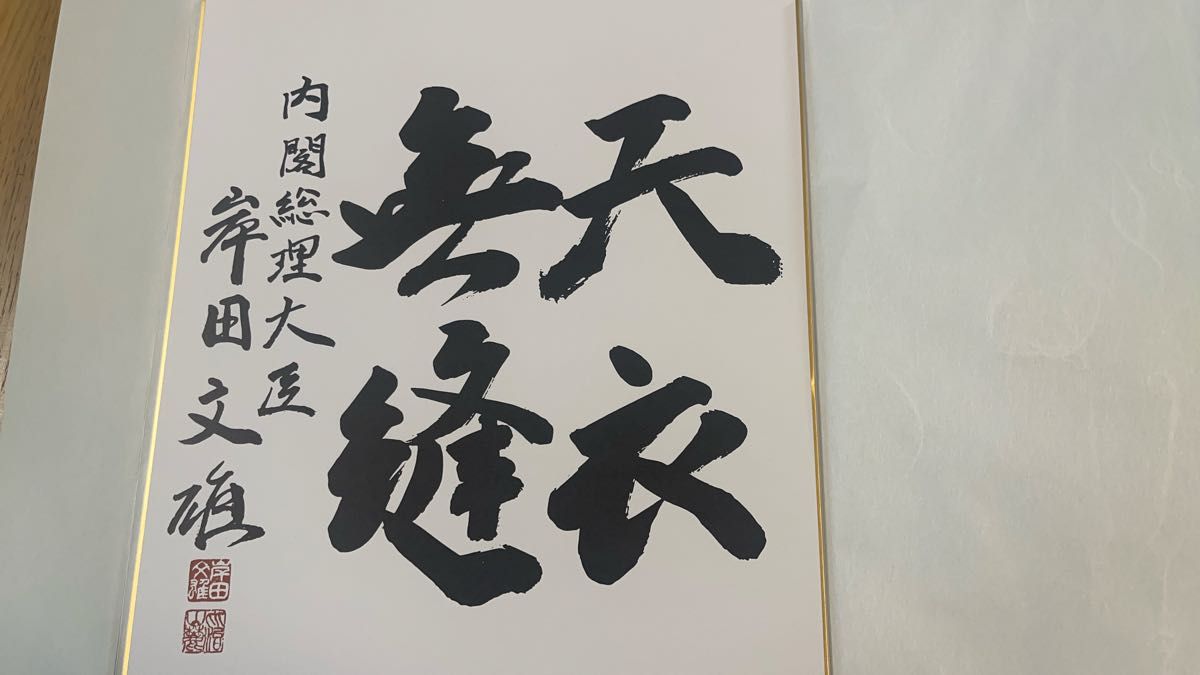 天衣
無縫
内閣総理大臣
岸田文雄
岸田文雄